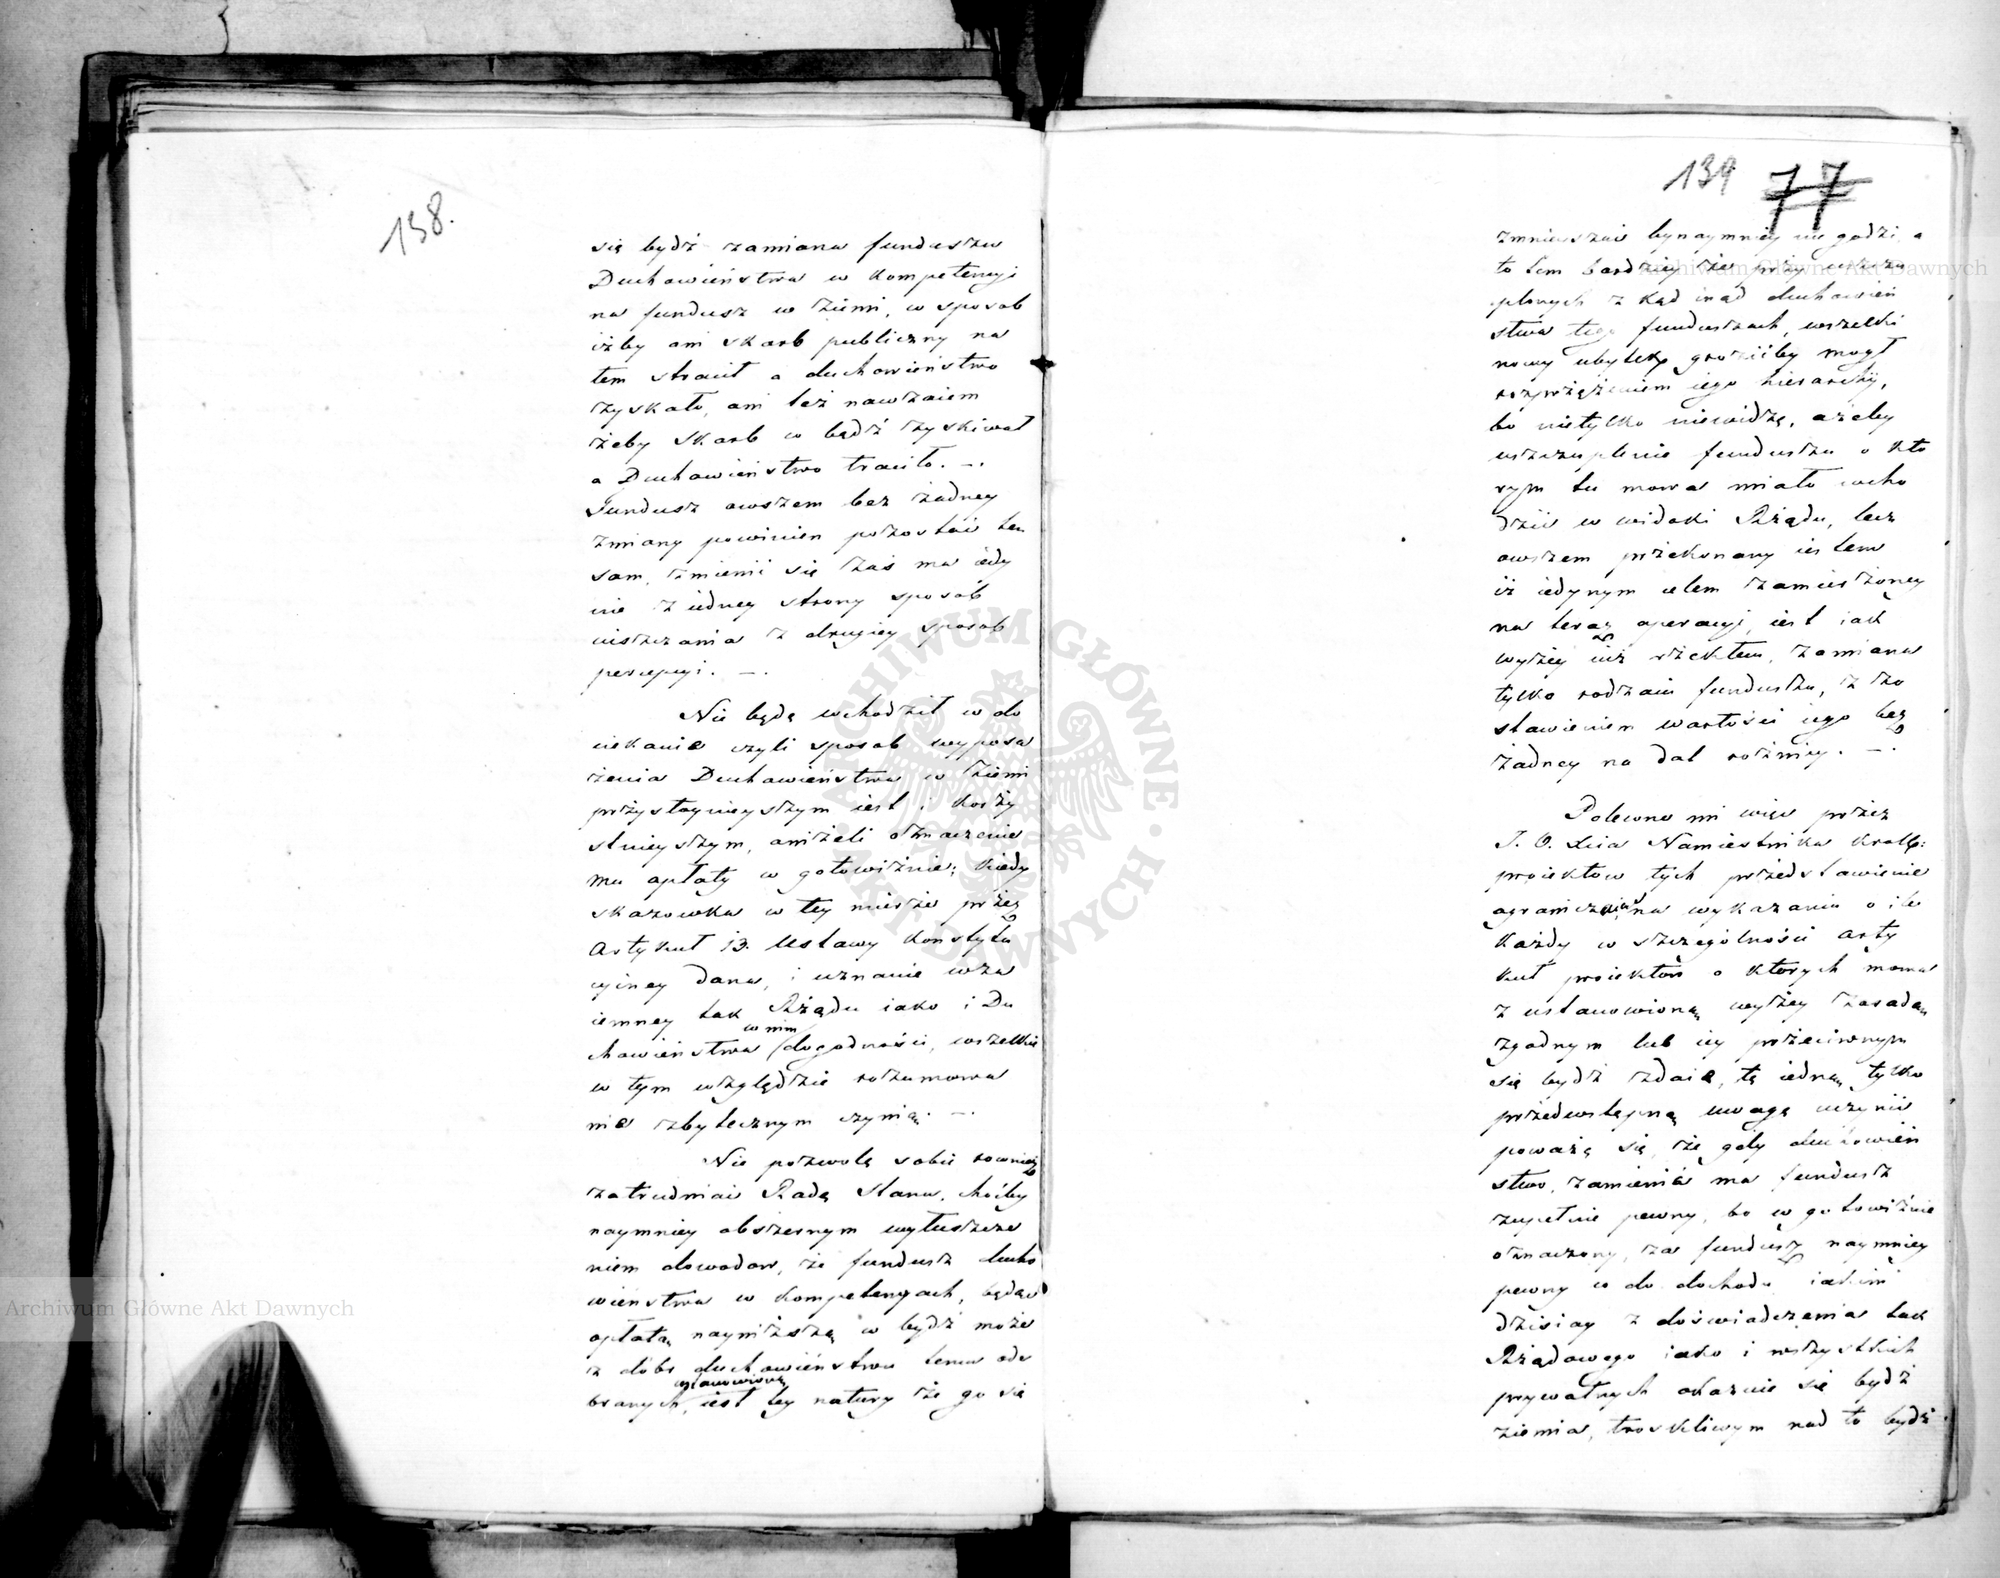 138.
się bydź zamiana funduszu
Duchowieństwa w kompetencyi
na fundusz w ziemi, w sposob
iżby ani skarb publiczny na
tem stracił a duchowieństwo
zyskało, ani też nawzaiem
żeby skarb co bądź zyskiwał
a Duchowieństwo traciło. —.
Fundusz owszem bez żadney
zmiany powinien pozostać ten
sam, zmienić się zaś ma iedy
nie z iedney strony sposób
uiszczania z drugiey sposob
percepcyi. —.
Nie będę wchodził w do
ciekanie czyli sposob wyposa
żenia Duchowieństwa w ziemi
przystoynieyszym iest i korzy
stnieyszym, aniżeli oznaczenie
mu opłaty w gotowiźnie; kiedy
skazowka w tey mierze przez
Artykuł 13. Ustawy Konstytu
cyiney dana, i uznanie wza
iemney tak Rządu iako i Du
chowieństwa w nim dogodności, wszelkie
w tym względzie rozumowa
nie zbytecznym czynią. —.
Nie pozwolę sobie rownież
zatrudniać Radę Stanu, choćby
naymniey obszernym wyłuszcze
niem dowodow, że fundusz ducho
wieństwa w kompetencyach, będąc
opłatą nayniższą co bydź może
z dóbr duchowieństwu temu ode
branych, ustanowioną iest tey natury że go się
139 77
zmnieyszać bynaymniey nie godzi, a
to tem bardziey że przy uszczu
plonych z kąd inąd duchowień
stwa tego funduszach, wszelki
nowy ubytek grozićby mogł
rozprzężeniem iego hierarchij,
bo nietylko niewidzę, ażeby
uszczuplenie funduszu o kto
rym tu mowa miało wcho
dzić w widoki Rządu, lecz
owszem przekonany iestem
iż iedynym celem zamierzoney
na teraz operacyi, iest iak
wyżey iuż rzekłem, zamiana
tylko rodzaiu funduszu, z zo
stawieniem wartości iego bez
żadney na dal rożnicy. —.
Polecone mi więc przez
J. O. Xcia Namiestnika Krolle:
proiektow tych przedstawienie
ograniczaiąc na wykazaniu o ile
każdy w szczególności arty
kuł proiektów o ktorych mowa
z ustanowioną wyżey zasadą
zgodnym lub iey przeciwnym
się bydź zdaie, tę iedną tylko
przedwstępną uwagę uczynić
poważę się, że gdy duchowień
stwo, zamienić ma fundusz
zupełnie pewny, bo w gotowiźnie
oznaczony, za fundusz naymniey
pewny co do dochodu iakim
dzisiay z doświadczenia tak
Rządowego iako i wszystkich
prywatnych okazuie się bydź
ziemia, troskliwym nad to bydź
Archiwum Główne Akt Dawnych
Archiwum Główne Akt Dawnych
ARCHIWUM GŁÓWNE AKT DAWNYCH